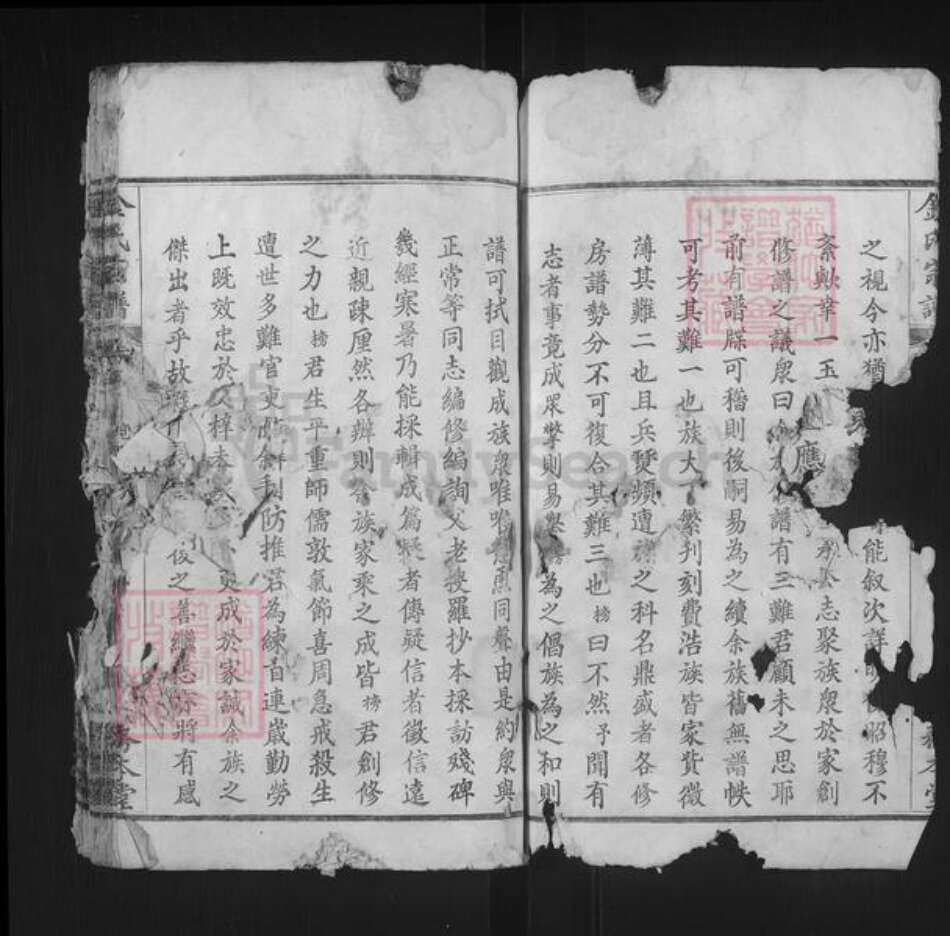 之視今亦猶 能叙次詳 昭穆不
紊歟 一玉 應 志聚族衆於家創
修譜之議衆曰 譜有三難君顧未之思耶
前有譜牒可稽則後嗣易為之續余族舊無譜帙
可考其難一也族大丁繁刊刻費浩族皆家貲微
薄其難二也且兵燹頻遭 之科名鼎盛者各修
房譜勢分不可復合其難三也榜曰不然予聞有
志者事竟成眾擎則易舉 為之倡族為之和則
譜可拭目觀成族衆唯唯 同聲由是約衆與
正常等同志編修編詢父老搜羅抄本採訪殘碑
幾經寒暑乃能採輯成篇疑者傳疑信者徵信遠
近親疎厘然各辨則今族家乘之成皆榜君創修
之力也榜君生平重師儒敦氣節喜周急戒殺生
遭世多難官吏 防推君為練首連歲勤勞
上既效忠於 梓 成於家誠余族之
傑出者乎故 俊之善繼志 將有感
氏宗譜
務本堂
FamilySearch